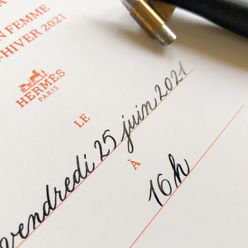 N FEMME
-HIVER 2021
HERMÈS
PARIS
LE
vendredi 25 juin 2021
À
16h